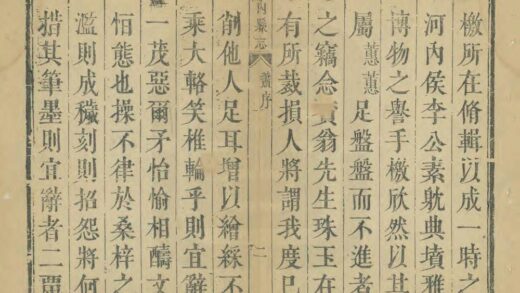 檄所在脩輯以成一時之
河內侯李公素躭典墳雅
博物之譽手檄欣然以其
屬蕙蕙足盤盤而不進者
之竊念翁先生珠玉在
有所裁損人將謂我度已
內縣志 蕭序 二
削他人足耳增以繪綵不
乘大輅笑椎輪乎則宜辭
一茂惡爾矛怡愉相醻文
怕態也操不律於桑梓之
濫則成穢刻則招怨將何
措其筆墨則宜辭者二